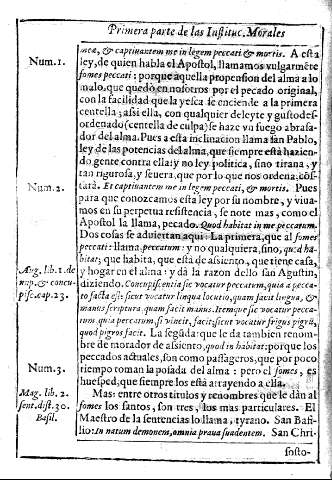 Primera parte de las Instituc. Morales
meæ, & captivantem me in legem peccati & mortis. A esta
Num.1. ley, de quien habla el Apostol, llamamos vulgarmẽte
fomes peccati: porque aquella propension del alma a lo
malo, que quedò en nosotros por el pecado original,
con la facilidad que la yesca se enciende a la primera
centella; assi ella, con qualquier deleyte y gusto des-
ordenado (centella de culpa) se haze vn fuego abrasa-
dor del alma. Pues a esta inclinacion llama san Pablo,
ley de las potencias del alma, que siempre està hazien-
do gente contra ella: y no ley politica, sino tirana, y
tan rigurosa, y seuera, que por lo que nos ordena, cõs-
Num.2. tarà. Et captivantem me in legem peccati, & mortis. Pues
para que conozcamos esta ley por su nombre, y viua-
mos en su perpetua resistencia, se note mas, como el
Apostol la llama, pecado. Quod habitat in me peccatum.
Dos cosas se aduiertan aqui: La primera, que al fomes
peccati: llama, peccatum: y no qualquiera, sino, quod ha-
bitat; que habita, que està de assiento, que tiene casa,
Aug. lib. 1. de y hogar en el alma: y dà la razon dello san Agustin,
nup. & concu- diziendo. Concupiscentia sic vocatur peccatum, quia a pecca-
pisc. cap. 23. to facta est: sicut vocatur lingua locutio, quam facit lingua, &
manus scriptura quam facit manus. Itemque sic vocatur pecca-
tum, quia peccatum si vincit, facit: sicut vocatur frigus pigrũ,
quod pigros facit. La segũda: que le da tambien renom-
bre de morador de assiento, quod in habitat: porque los
pecados actuales, son como passageros, que por poco
Num.3. tiempo toman la posada del alma: pero el fomes, es
huesped, que siempre los està atrayendo a ella.
Mag. lib. 2. Mas: entre otros titulos y renombres que le dàn al
sent. dist. 30. fomes los santos, son tres, los mas particulares. El
Basil. Maestro de las sentencias lo llama, tyrano. San Basi-
lio: In natum demonem, omnia praua suadentem. San Chri-
sosto-